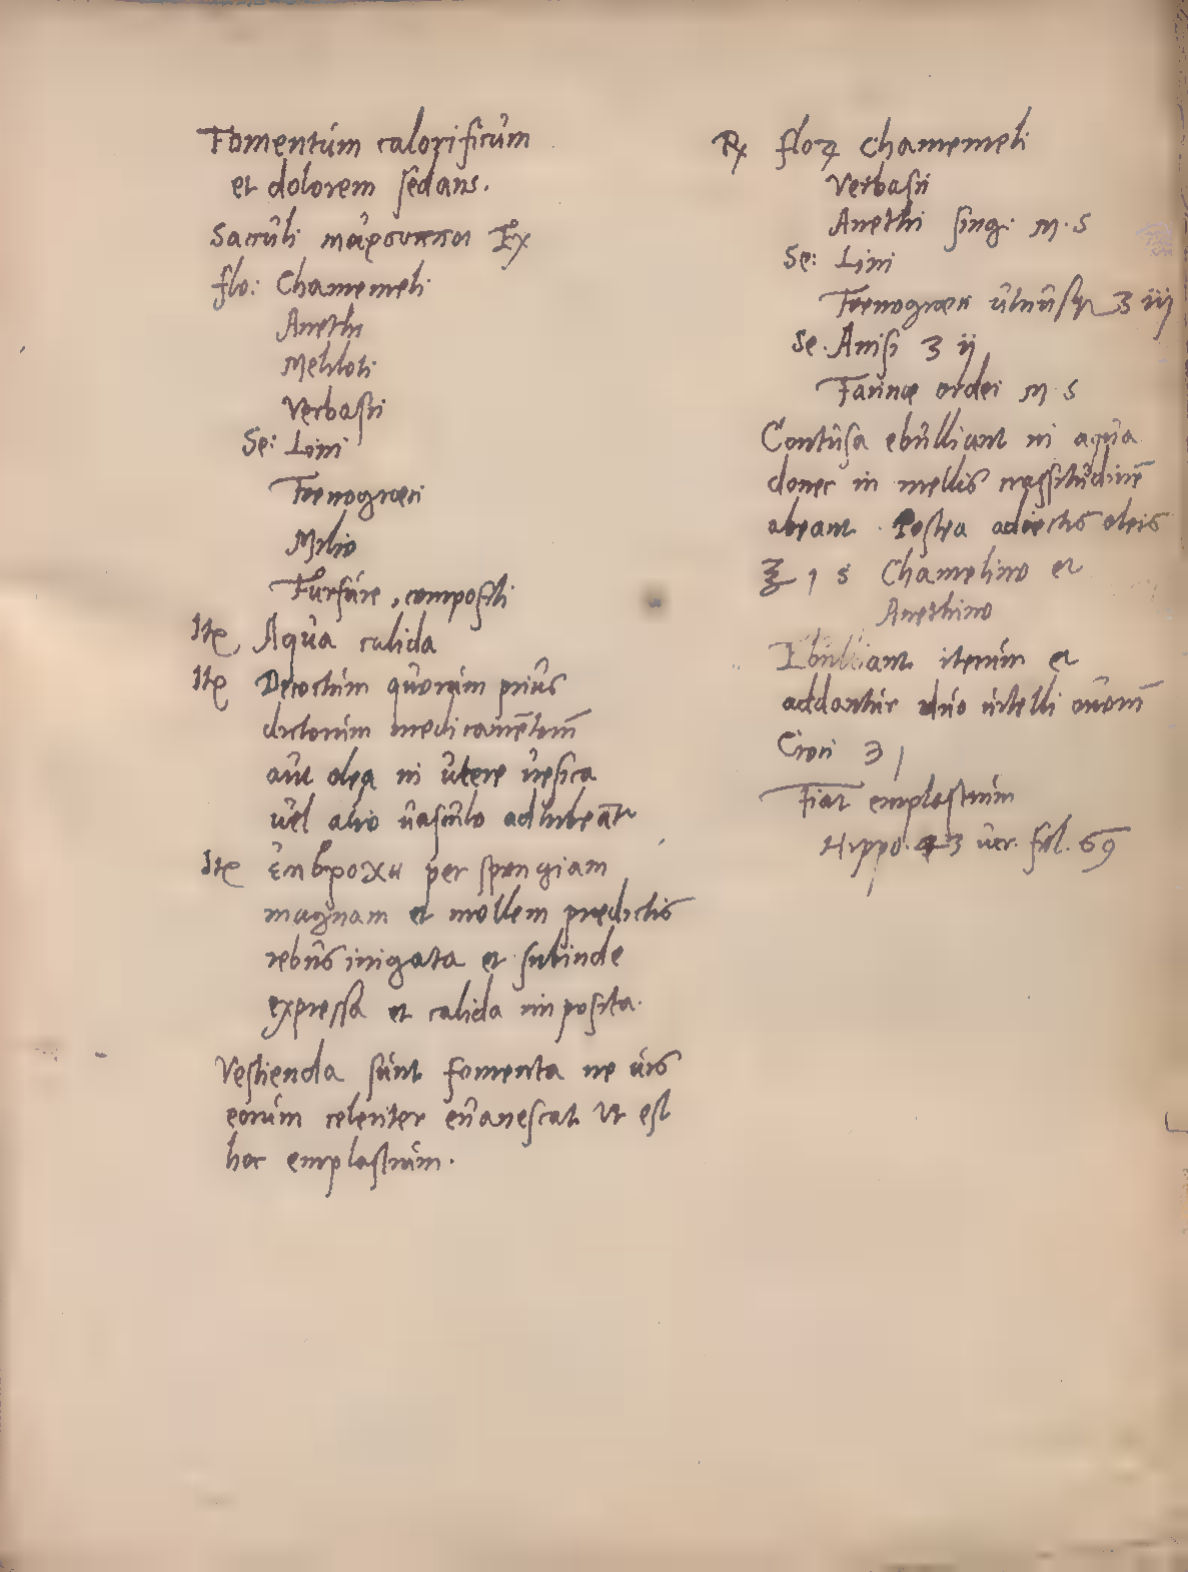 Fomentum calorificum
et dolorem sedans.
Sacculi μάρσυπποι Ex
flo: Chamemeli
Anethi
Meliloti
Verbasci
Se: Lini
Foenograeci
Milio
Furfure, compositi
Ite Aqua calida
Ite Decoctum quorum prius
dictorum medicamētorum
aut olea in utere uesica
uel alio uasculo adhibeātr
Ite ἐμβροχη per spongiam
magnam et mollem predictis
rebus irrigata et subinde
expressa et calida imposita.
Vestienda sunt fomenta ne uis
eorum celeriter euanescat Vt est
hoc emplastrum.
℞ floꝝ Chamemeli
Verbasci
Anethi sing: M. s
Se: Lini
Foenograeci utriusqʒ ʒ iij
Se. Anisi ʒ ij
Farinae ordei M s
Contusa ebulliant in aqua
donec in mellis crassitudinē
abeant. Postea adiectis oleis
℥ 1 s Chamelino et
Anethino
Ebulliant iterum et
addantur duo uitelli ouorū
Croci ʒ j
Fiat emplastrum
Hippo. 43 uer. fol. 69